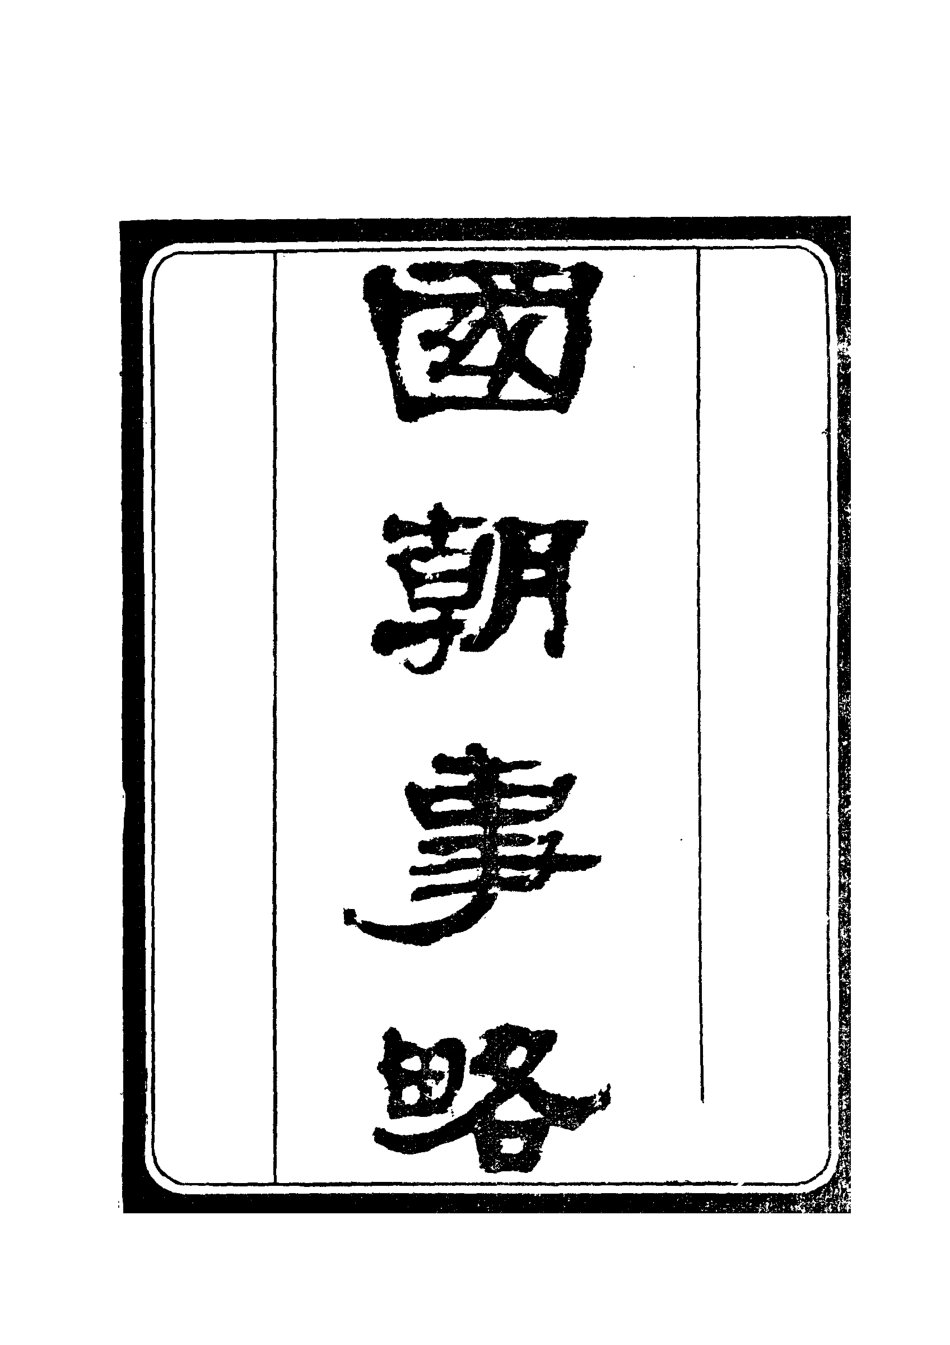 國朝事略